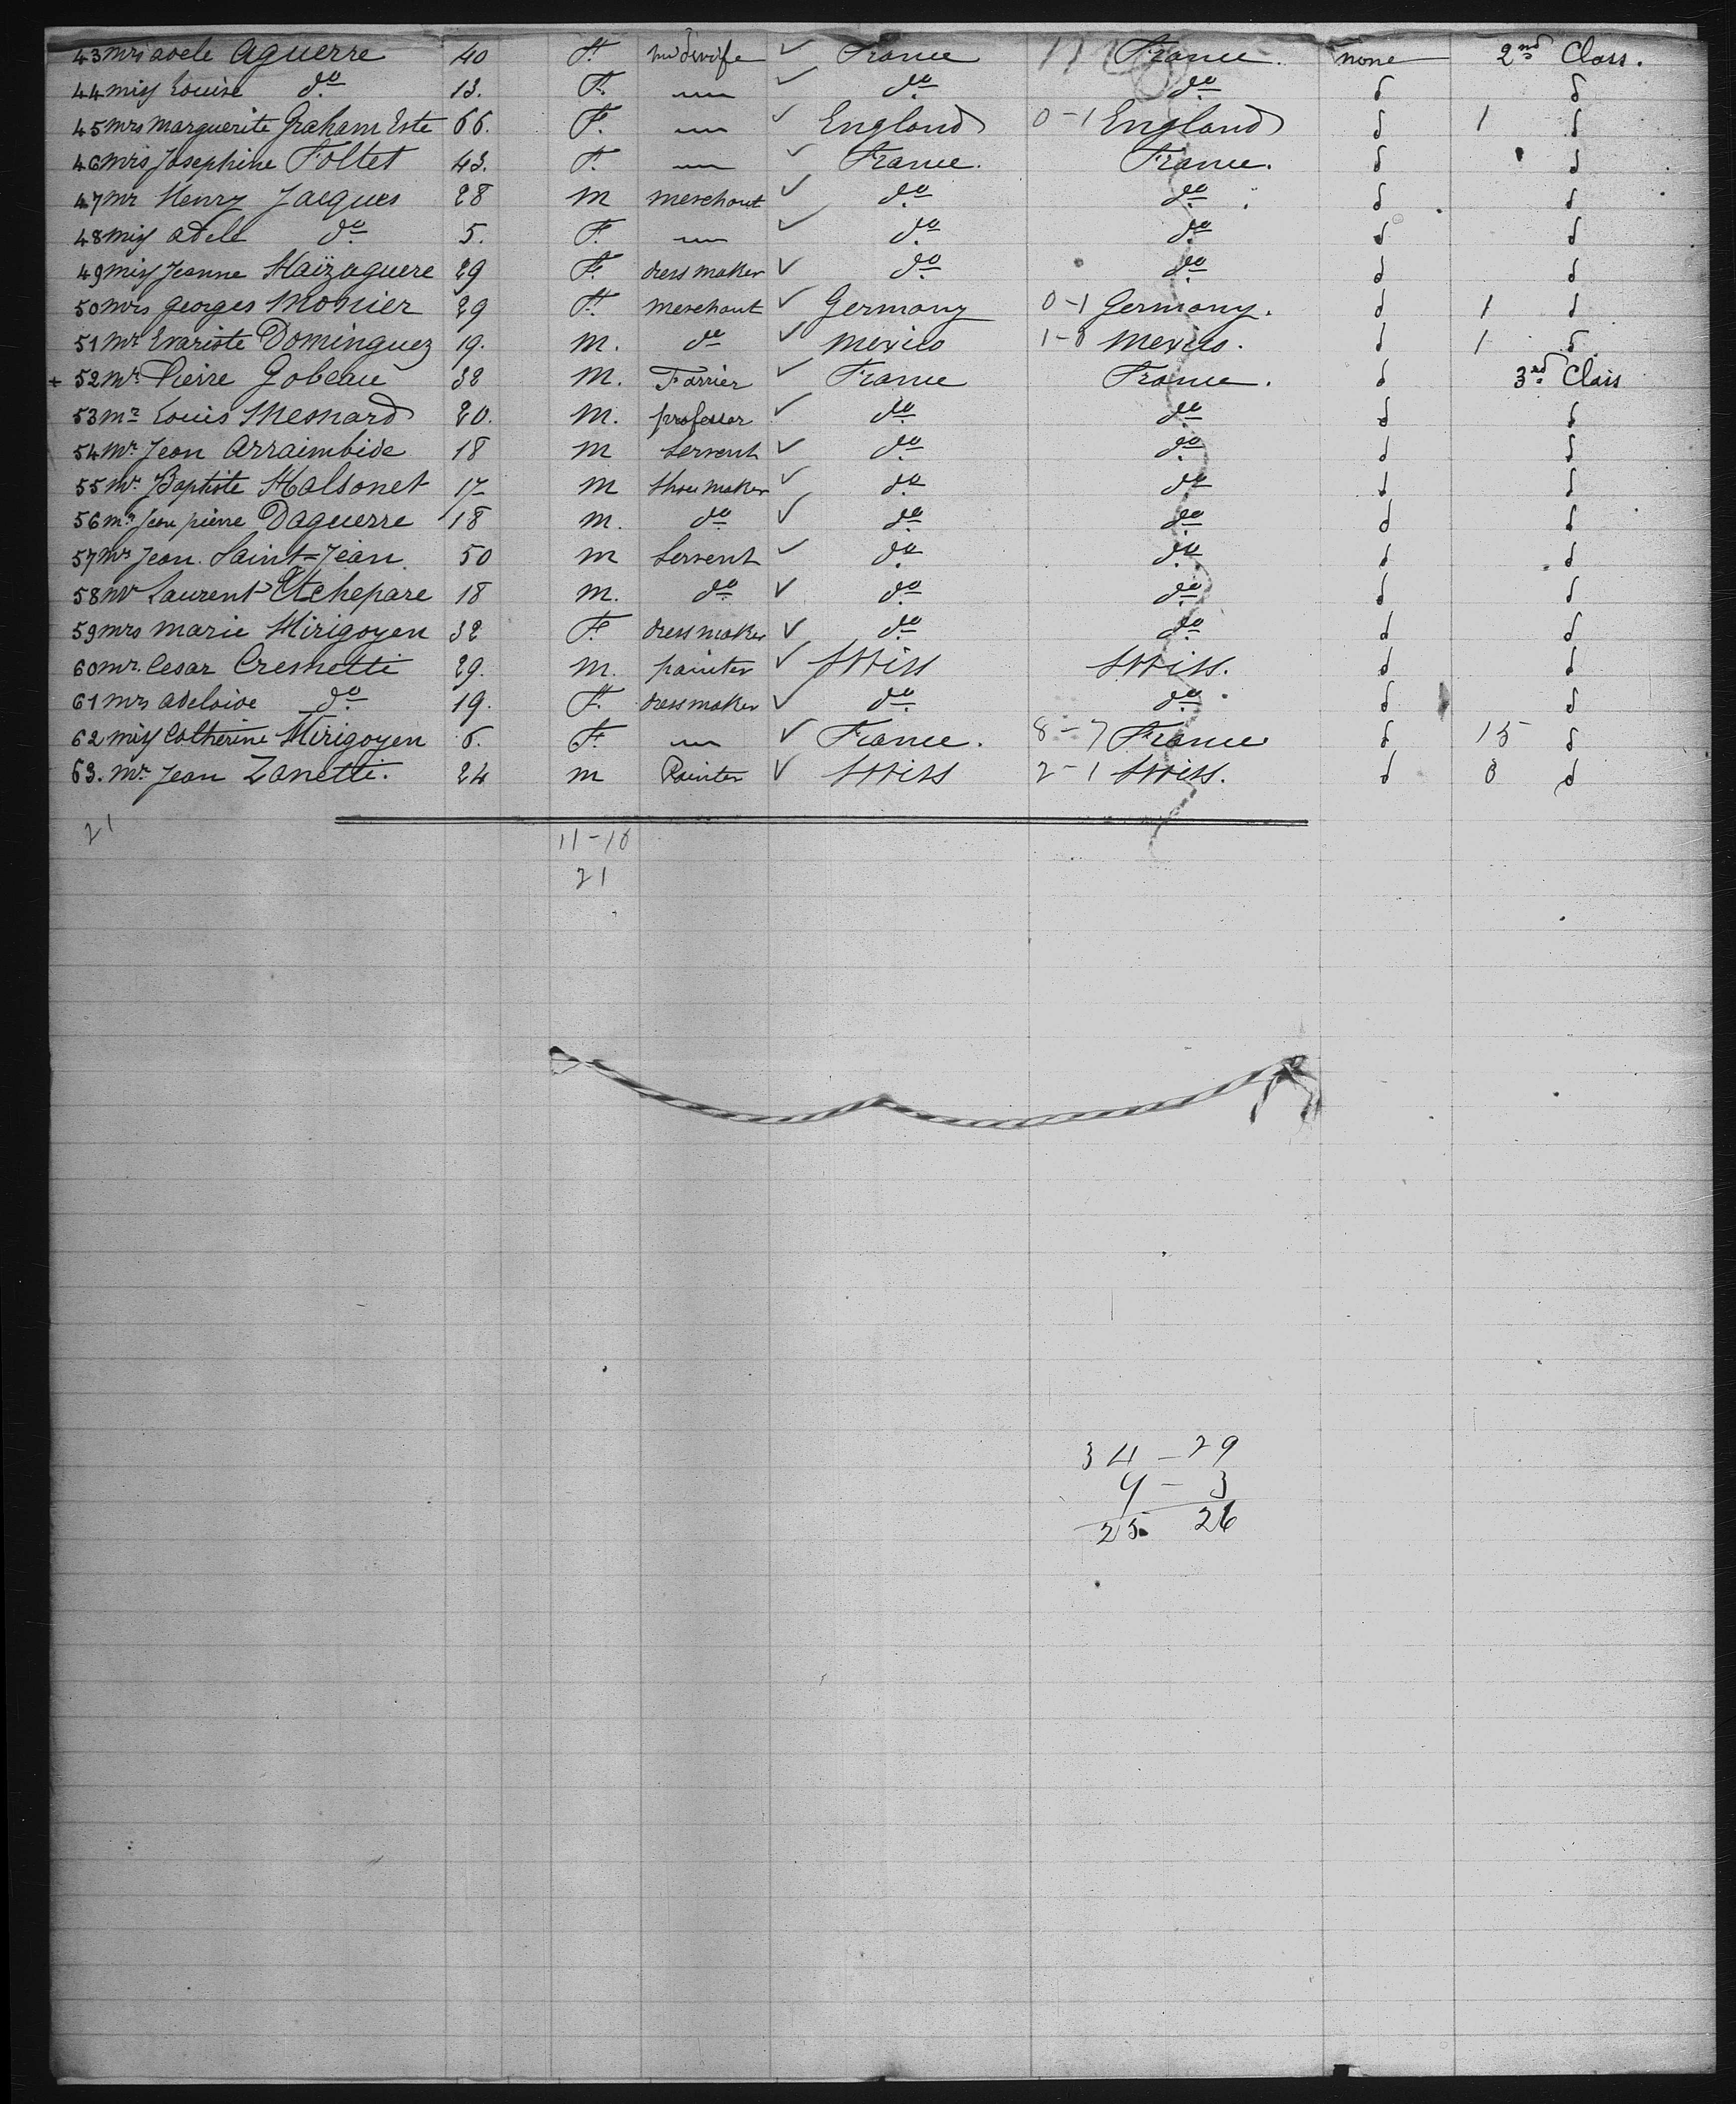 43 Mrs Adele Aguerre 40 F. midwife ✓ France 11 France. none 2nd Class.
44 Miss Louise do 13. F. — ✓ do do d d
45 Mrs Marguerite Graham Este 66. F. — ✓ England 0-1 England d 1 d
46 Mrs Josephine Foltet 43. F. — ✓ France. France. d d
47 Mr Henry Jacques 28 M merchant ✓ do do d d
48 Miss Adele do 5. F. — ✓ do do d d
49 Miss Jeanne Haïzaguere 29 F. dress maker ✓ do do d d
50 Mrs Georges Monier 29 F. merchant ✓ Germany 0-1 Germany. d 1 d
51 Mr Evariste Dominguez 19. M. do ✓ Mexico 1-0 Mexico. d 1 d
+ 52 Mr Pierre Gobeau 38 M. Farrier ✓ France France. d 3rd Class
53 Mr Louis Mesnard 20. M. professor ✓ do do d d
54 Mr Jean Arraimbide 18 M servent ✓ do do d d
55 Mr Baptiste Halsonet 17 M shoe maker ✓ do do d d
56 Mr Jean pierre Daguerre 18 M. do ✓ do do d d
57 Mr Jean Saint-Jean. 50 M servent ✓ do do d d
58 Mr Laurent Etchepare 18 M. do ✓ do do d d
59 Mrs Marie Hirigoyen 32 F. dress maker ✓ do do d d
60 Mr. Cesar Cresnetti 29. M. painter ✓ Swiss Swiss. d d
61 Mrs Adelaide do 19. F. dressmaker ✓ do do d d
62 Miss Catherine Hirigoyen 6. F. — ✓ France. 8-7 France d 15 d
63. Mr Jean Zanetti. 24 M Painter ✓ Swiss 2-1 Swiss. d d
21
11-10
21
34-29
9-3
25. 26